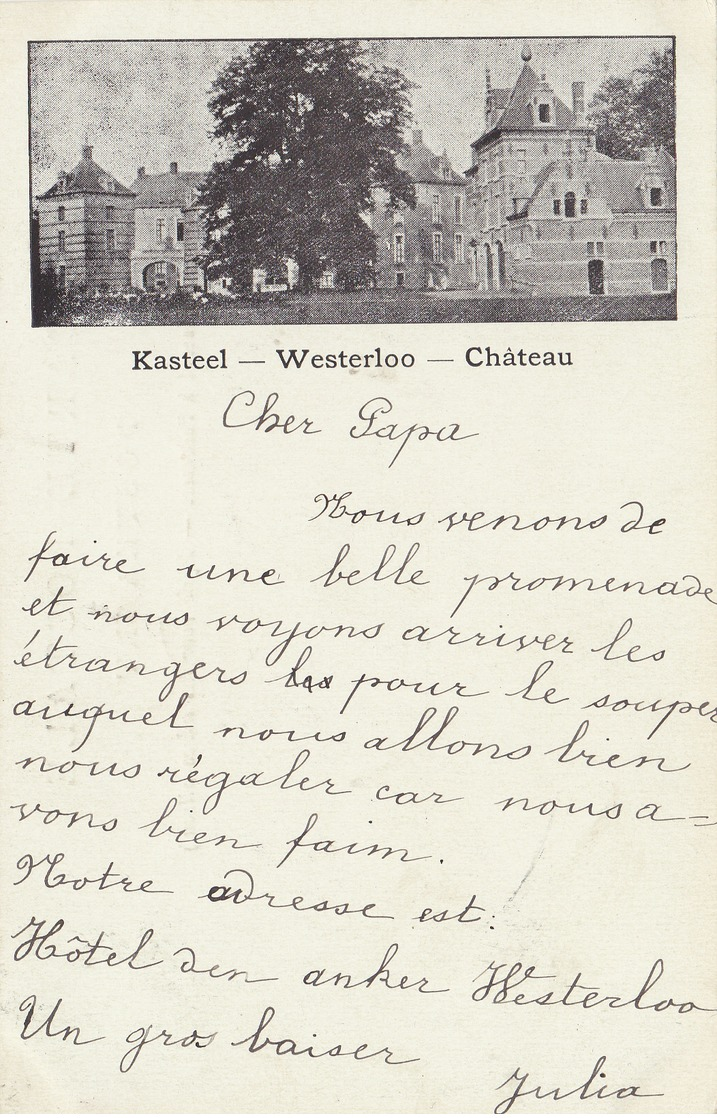 Kasteel — Westerloo — Château
Cher Papa
Nous venons de
faire une belle promenade
et nous voyons arriver les
étrangers pour le souper
auquel nous allons bien
nous régaler car nous a=
vons bien faim.
Notre adresse est:
Hôtel den anker Westerloo
Un gros baiser
Julia